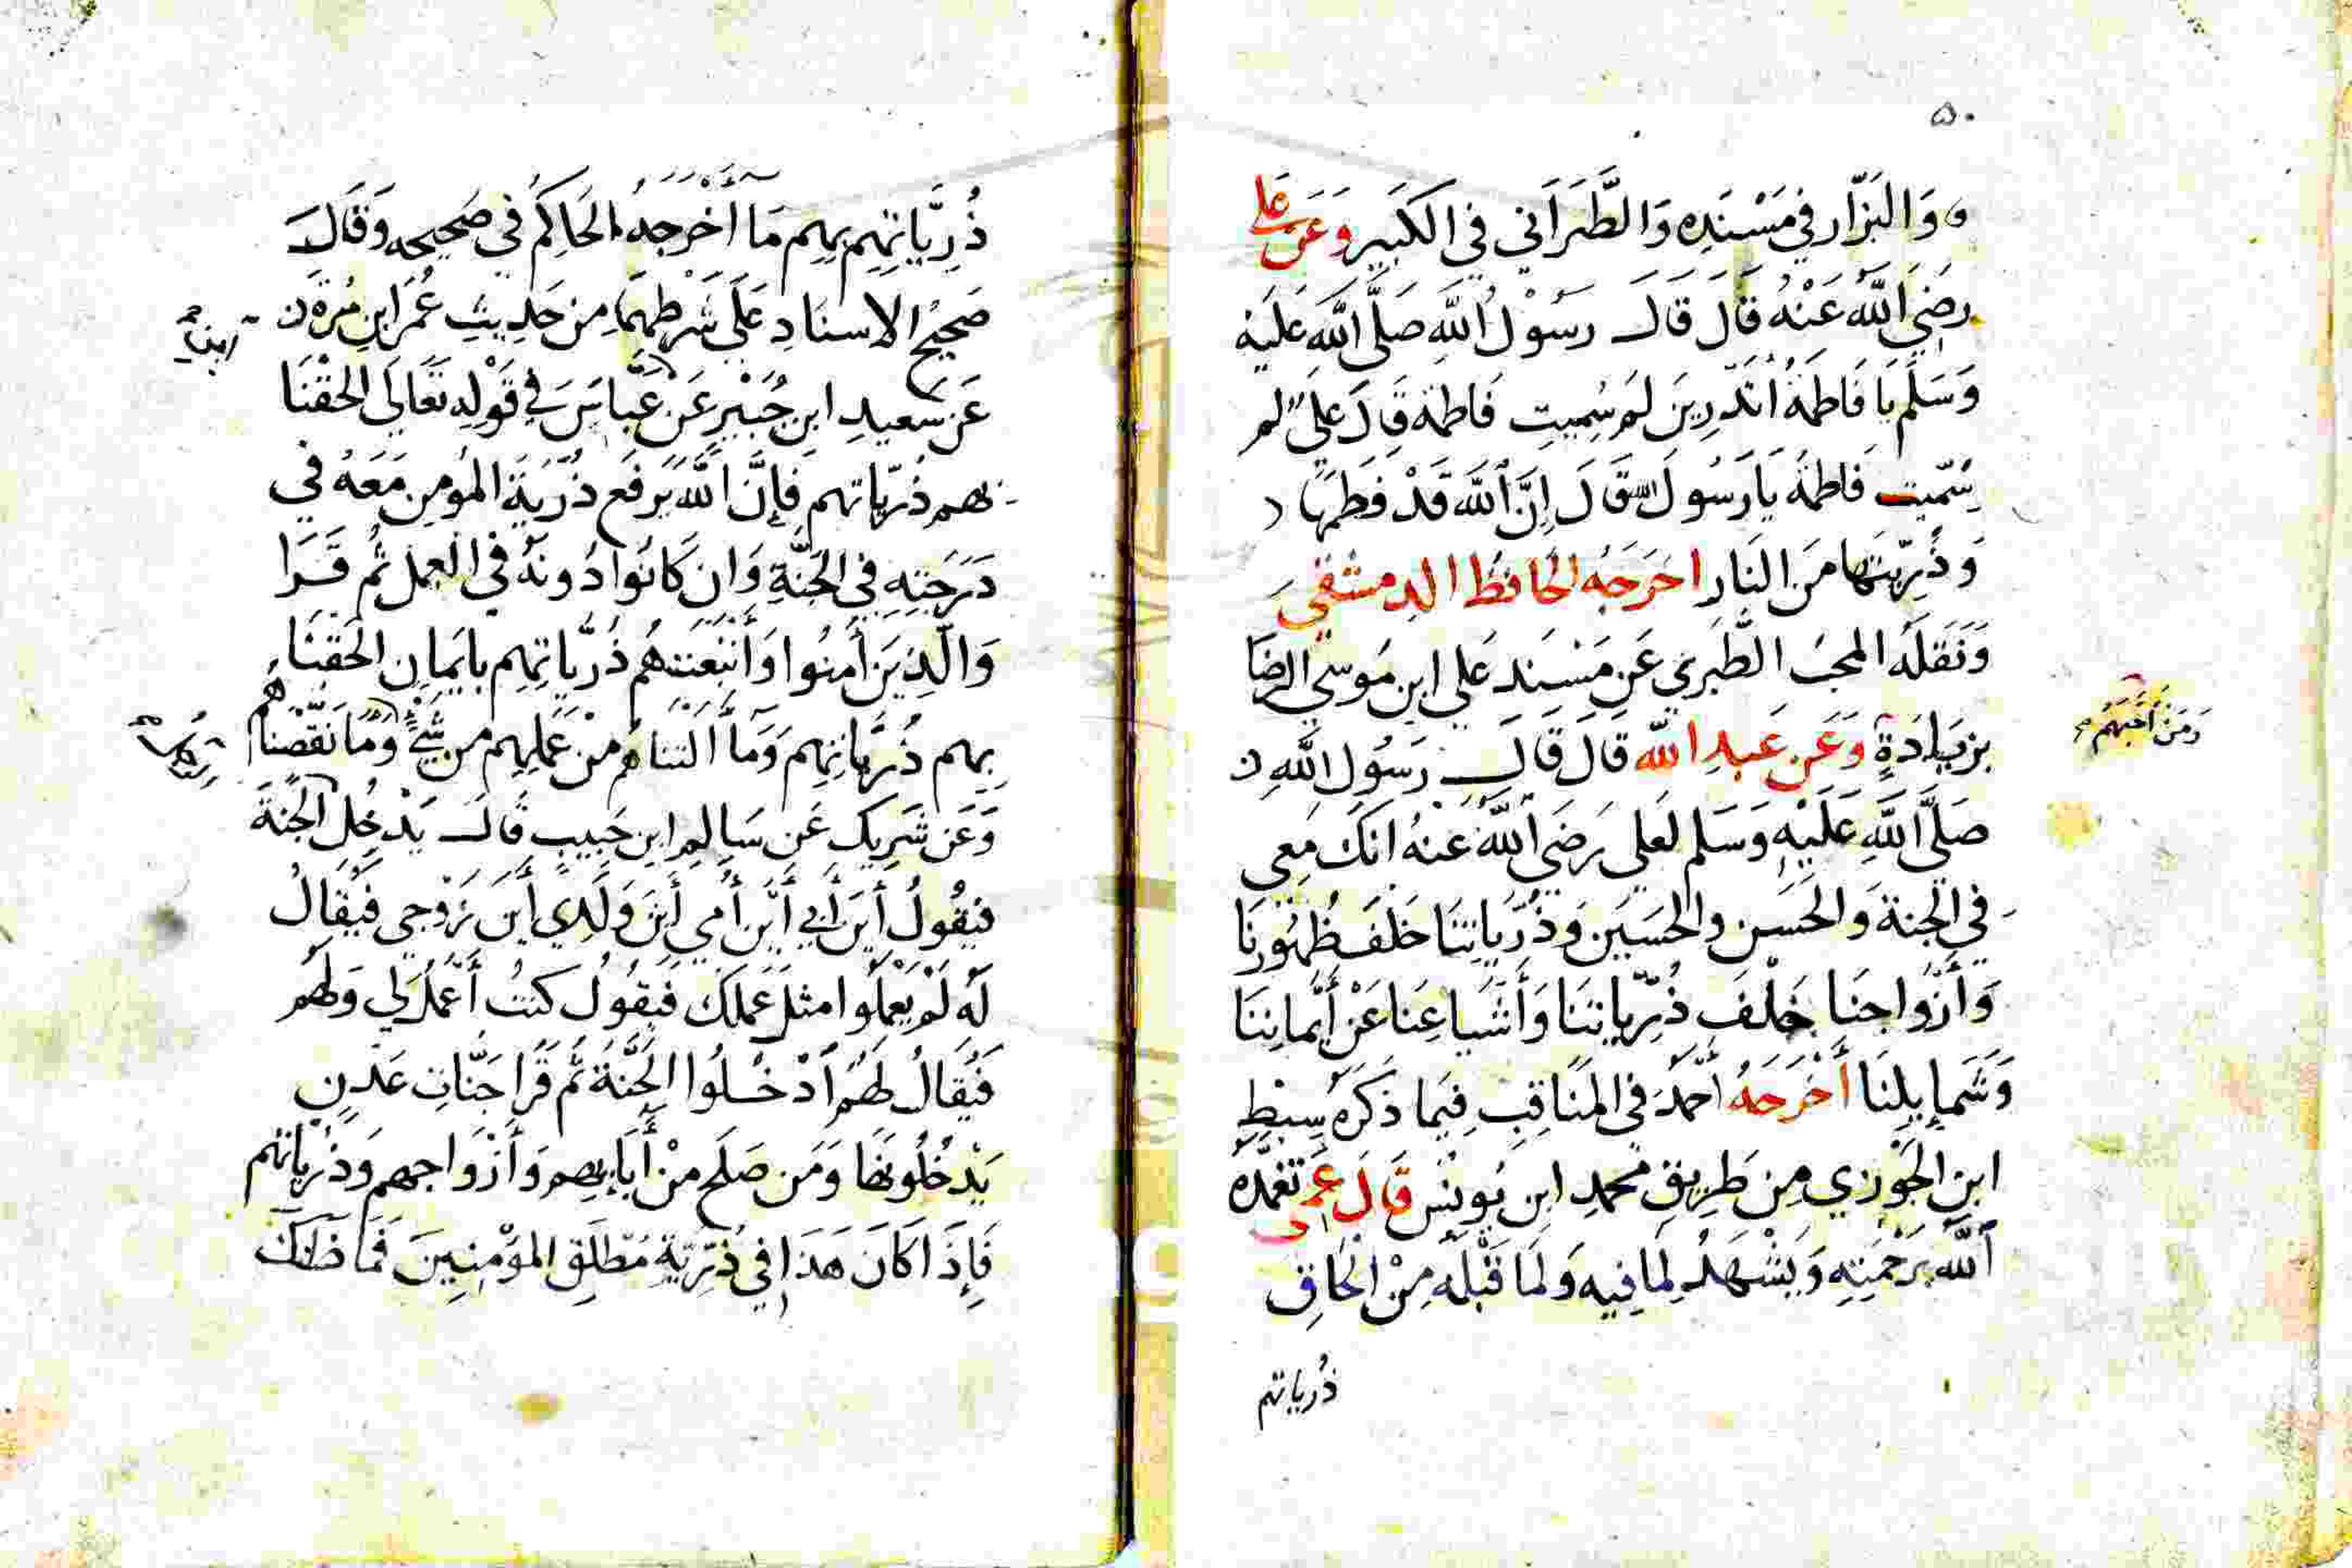 ٥٠
وَالبَزّار في مَسْنَدِه وَالطَّبَرَاَني في الكَبَيِر وَعَن عَلي
رضَيَ اللَّه عَنْهُ قَالَ قَالَ رسَوُلُ اللَّهِ صَلَّى اللَّه عَلَيْه
وَسَلَّم يَا فَاطمَةُ أتَدْرِينَ لِمَ سُمِيتِ فَاطمَة قَالَ عَلَىٌ لم
سُمّيت فَاطمَة يَا رَسُولَ اللّه قَالَ إِنَّ اللَّه قَدْ فَطمَهَا
وَذُرِّيّتَها مَن النَّارِ اخَرَجَهُ الحَافظ الدِمشقي
وَنَقَلَهُ المحبُ الطَّبَري عَن مَسْنَدِ عَلي ابن مَوسىَ الرِضَا
بزيَادَةٍ وَعَن عَبدِ الله قَالَ قَالَ رَسُول اللَّهِ
صَلَّى اللَّهِ عَلَيْهِ وَسَلم لعَلي رَضَي اللَّه عَنهُ انكَ مَعِي
في الجَنة وَالحَسَن والحسَيَن وَذُرّيَاتِنَا خَلفَ ظُهُورنَا
وَأزْوَاجنَا خَلْفَ ذُرِّيَاتِنَا وَأَشيَاعنَا عَنْ أَيمانِنَا
وَشَمايلِنَا أَخْرَجَهُ أَحْمَدُ في المنَاقِبِ فِيَما ذَكَرَه سِبْطِ
ابنِ الجَوزي مِن طَرِيق محمدِ ابن يُونسُ قَالَ عَمِّى تغمَّدَه
اللَّه بَرَحْمَتِهِ وَيَشْهَدُ لِمَا فِيه وَلَمَا قَبْلَه مِنْ الحَاقِ
ذُرياتهم
وَمَن أَحَبَهُم
ذُرِيَّاتِهِم بِهِم مَا أَخْرَجَهُ الحَاكِمُ في صَحيحِه وَقَالَ
صَحيْحُ الاسنَادِ عَلَى شَرطِهمَا مِن حَدِيثِ عُمَر ابنِ مُرَّة
عَن سعيدِ ابن جُبَيْرِ عَن عَبَّاسَ في قَوْلِه تَعَالَى الحَقْنَا
بهم ذُرّيَاتهم فَإِنَّ اللَّه يَرفَع ذُرّيَةَ المؤمِن مَعَهُ في
دَرَجَتِهِ في الجَنَّةِ وَان كَانُوا دُونَهُ في العمل ثُم قَرَا
وَالَّذِيَن أَمنوا وَأَتبَعَتهُم ذُرّيَاتِهِم بايَمانِ الحَقنَا
بهم ذُرّيَاتِهم وَمَا أَلَتنَاهُم مِنْ عَمَلِهِم من شَيْءٍ وَمَا نَقَصْنَاهُم
وَعَن شَرِيكِ عَن سَالِم ابن حَبِيبٍ قَالَ يَدْخِل الجَنةَ
فيَقُولُ أَينَ أبَي أَيْنَ أُمي أَيَن وَلَدِي أَيَن زَوْجي فَيُقَالُ
لَه لَمْ يَعْمَلُوا مثلَ عَملكَ فَيَقُولُ كنتُ أَعْمَلُ لي وَلَهُم
فَيُقَالُ لَهُمُ أدْخلُوا الجَنَّةَ ثُم قَرَا جَنَّاتِ عَدْنٍ
يَدْخُلُونَهَا وَمَن صَلَح مِنْ أَبَايِهِم وَأَزْوَاجهِم وَذُرّيَاتهم
فَإِذَا كَانَ هَذَا في ذُرِّيَةِ مُطْلَقِ المؤمِنِيِنَ فَمَا ظَنكَ
ابن